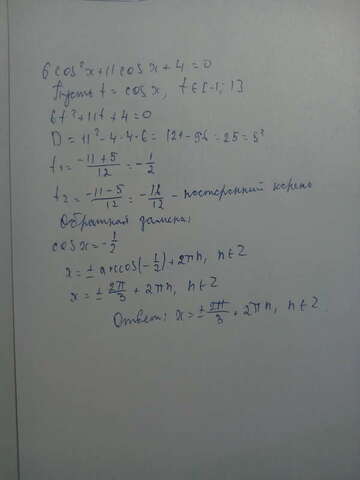 6cos²x+11cosx+4=0
Пусть t=cosx, t∈[-1; 1]
6t²+11t+4=0
D=11²-4·4·6=121-96=25=5²
t₁=(-11+5)/12=-1/2
t₂=(-11-5)/12=-16/12 - посторонний корень
Обратная замена:
cosx=-1/2
x=± arccos(-1/2)+2πn, n∈Z
x=± 2π/3+2πn, n∈Z
Ответ: x=± 2π/3+2πn, n∈Z